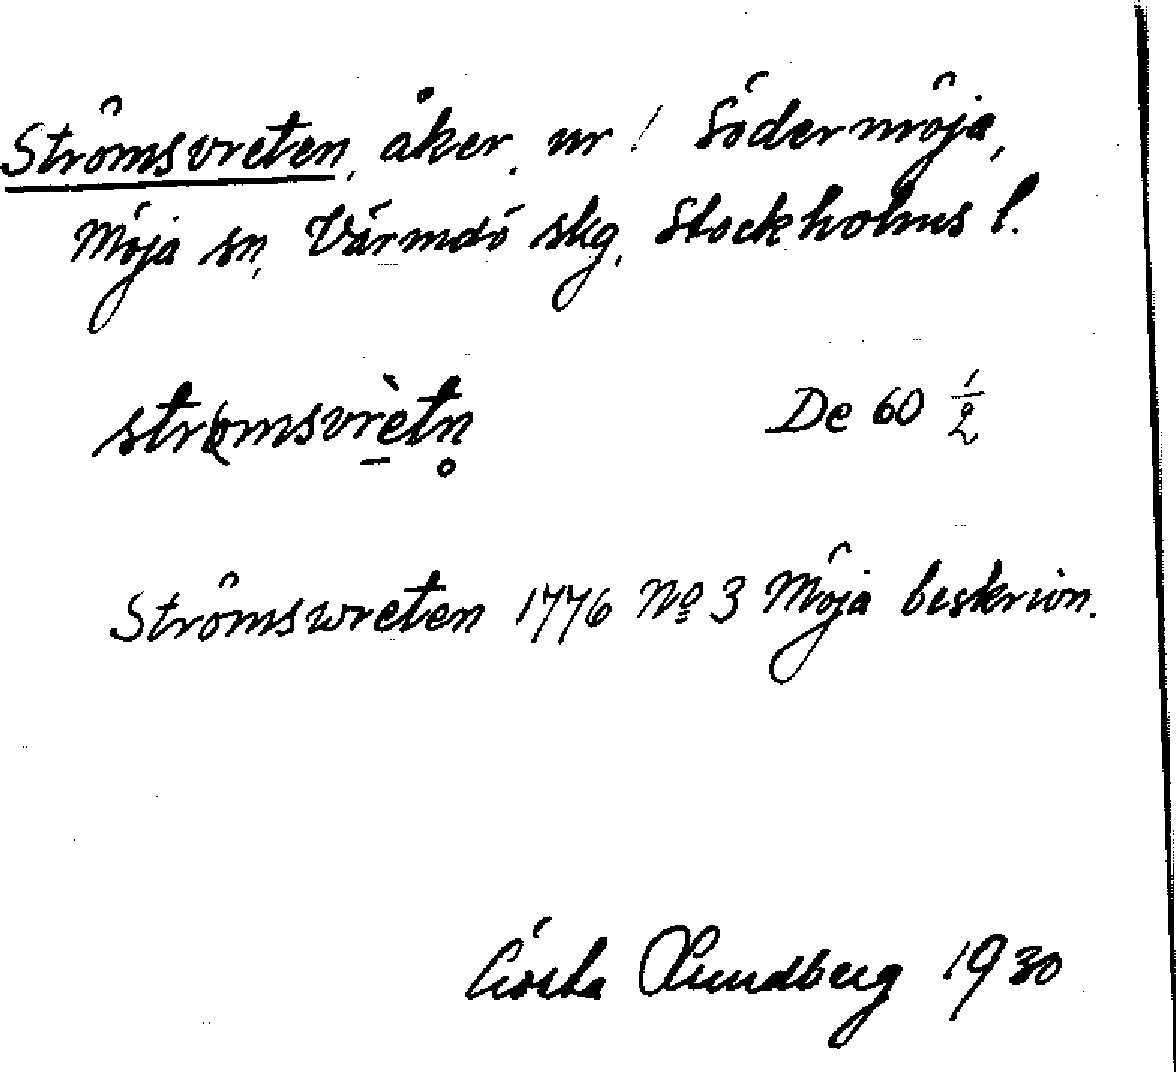 Strömsvreten, åker, nr 1 Södermöja,
Möja sn, Värmdö skg, Stockholms l.
strömsvrètn̥ De 60 1/2
Strömswreten 1776 No 3 Möja beskrivn.
Gösta Lundberg 1930